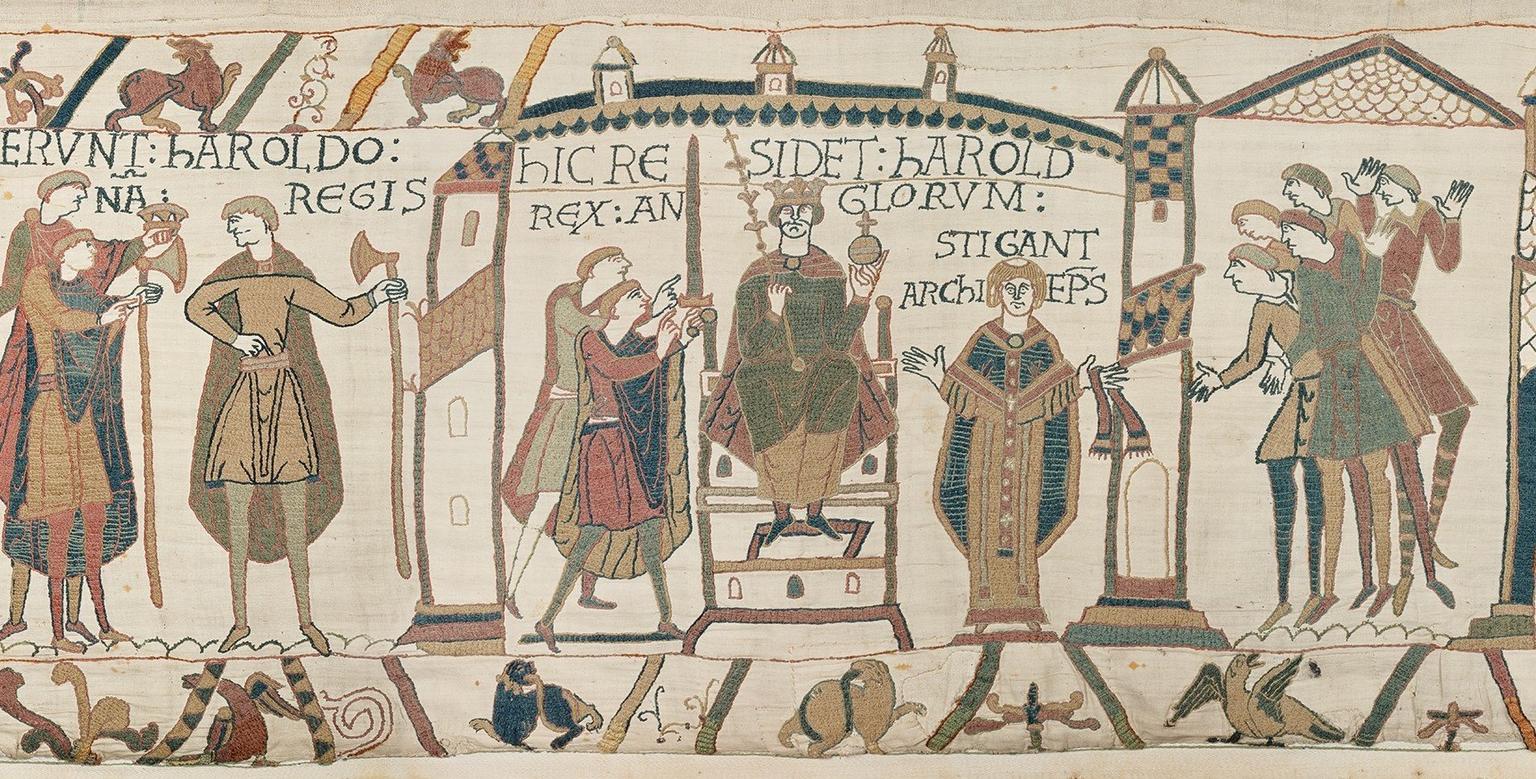 ERVNT: hAROLDO:
NA: REGIS
hIC RESIDET: hAROLD
REX: ANGLORVM:
STIGANT
ARChIEP̅S